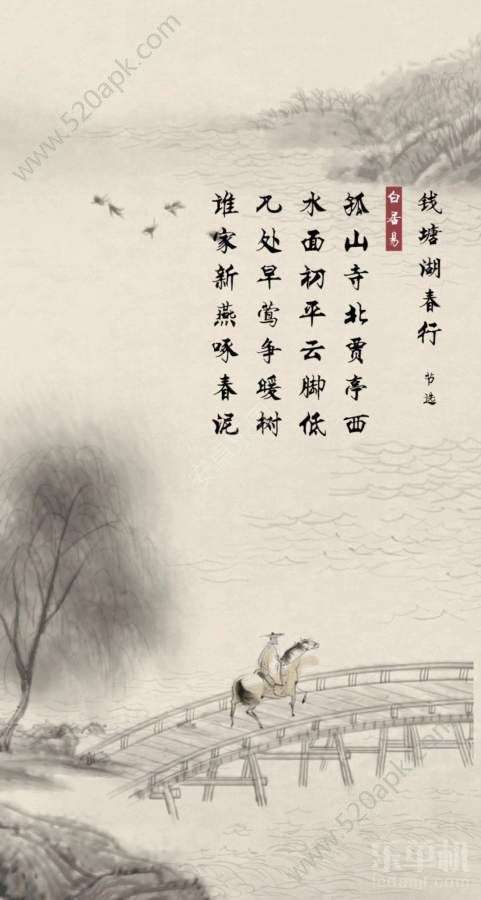 钱塘湖春行 节选
白居易
孤山寺北贾亭西
水面初平云脚低
几处早莺争暖树
谁家新燕啄春泥
www.520apk.com
www.520apk.com
www.520apk.com
乐单机
ledanji.com